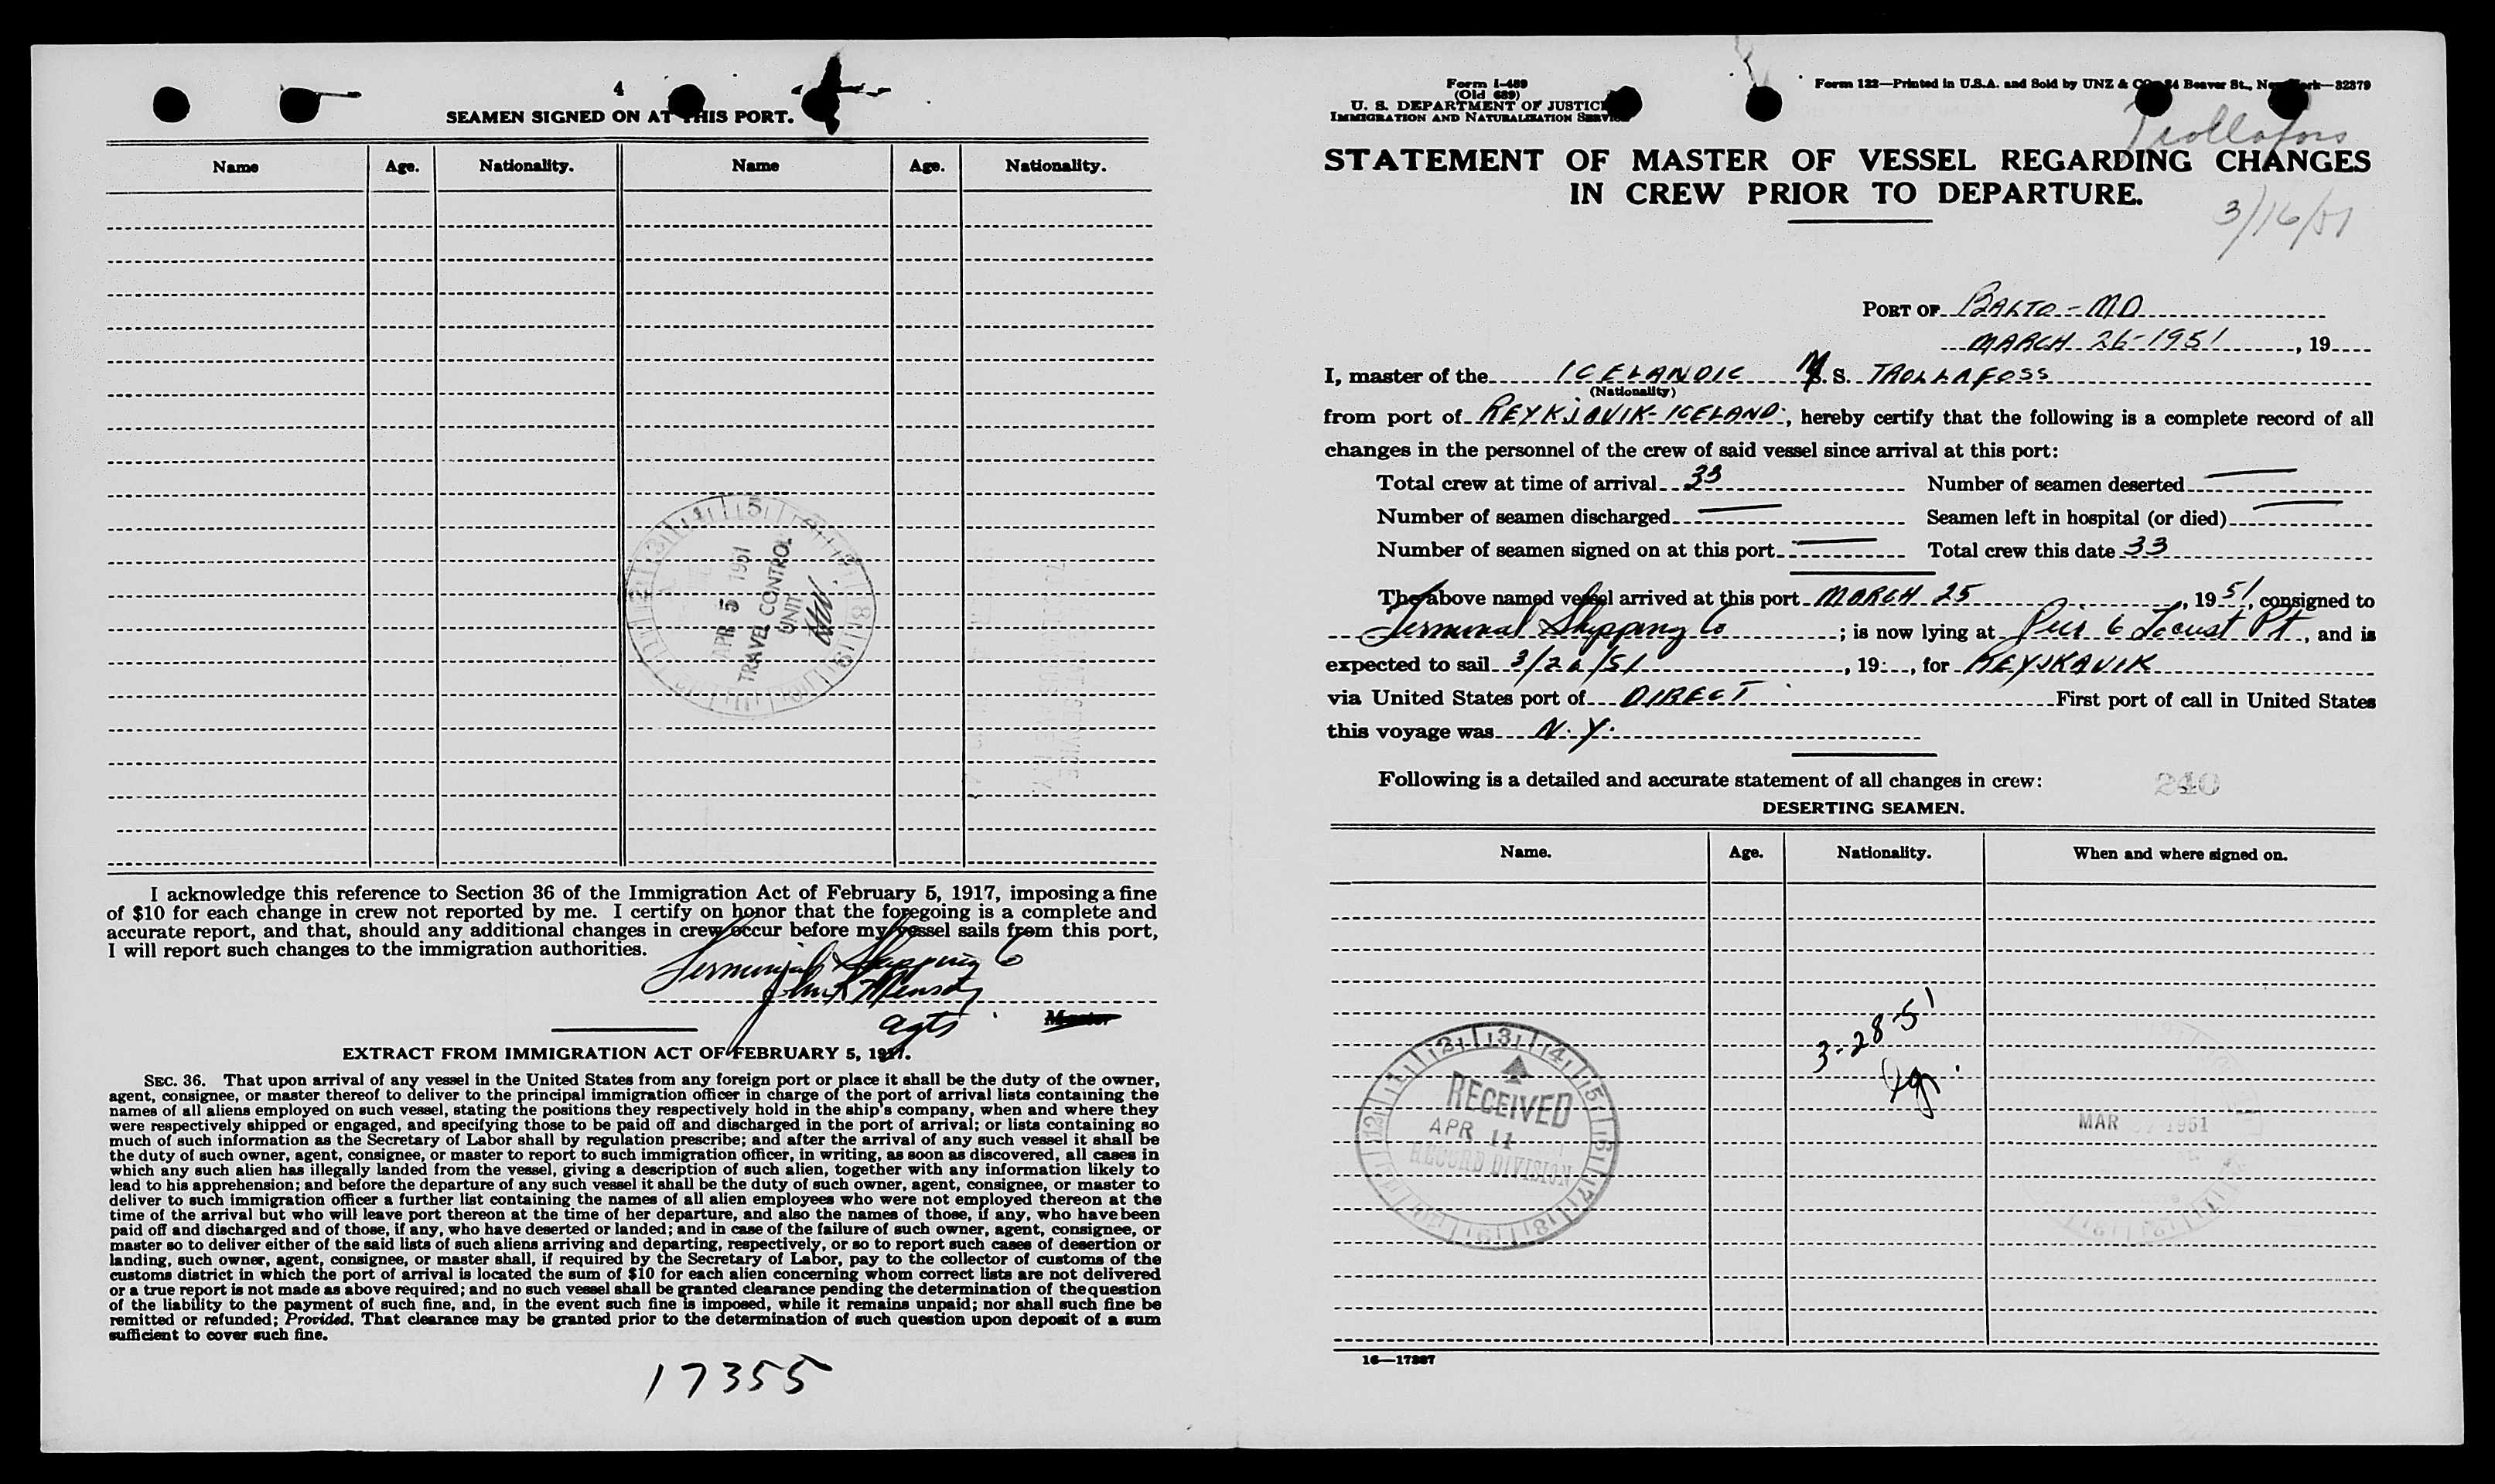 4
SEAMEN SIGNED ON AT THIS PORT.
Name Age. Nationality. Name Age. Nationality.
APR 5 1951
TRAVEL CONTROL
UNIT
I acknowledge this reference to Section 36 of the Immigration Act of February 5, 1917, imposing a fine
of $10 for each change in crew not reported by me. I certify on honor that the foregoing is a complete and
accurate report, and that, should any additional changes in crew occur before my vessel sails from this port,
I will report such changes to the immigration authorities.
Terminal Shipping Co
agts Master
EXTRACT FROM IMMIGRATION ACT OF FEBRUARY 5, 1917.
SEC. 36. That upon arrival of any vessel in the United States from any foreign port or place it shall be the duty of the owner,
agent, consignee, or master thereof to deliver to the principal immigration officer in charge of the port of arrival lists containing the
names of all aliens employed on such vessel, stating the positions they respectively hold in the ship's company, when and where they
were respectively shipped or engaged, and specifying those to be paid off and discharged in the port of arrival; or lists containing so
much of such information as the Secretary of Labor shall by regulation prescribe; and after the arrival of any such vessel it shall be
the duty of such owner, agent, consignee, or master to report to such immigration officer, in writing, as soon as discovered, all cases in
which any such alien has illegally landed from the vessel, giving a description of such alien, together with any information likely to
lead to his apprehension; and before the departure of any such vessel it shall be the duty of such owner, agent, consignee, or master to
deliver to such immigration officer a further list containing the names of all alien employees who were not employed thereon at the
time of the arrival but who will leave port thereon at the time of her departure, and also the names of those, if any, who have been
paid off and discharged and of those, if any, who have deserted or landed; and in case of the failure of such owner, agent, consignee, or
master so to deliver either of the said lists of such aliens arriving and departing, respectively, or so to report such cases of desertion or
landing, such owner, agent, consignee, or master shall, if required by the Secretary of Labor, pay to the collector of customs of the
customs district in which the port of arrival is located the sum of $10 for each alien concerning whom correct lists are not delivered
or a true report is not made as above required; and no such vessel shall be granted clearance pending the determination of the question
of the liability to the payment of such fine, and, in the event such fine is imposed, while it remains unpaid; nor shall such fine be
remitted or refunded; Provided, That clearance may be granted prior to the determination of such question upon deposit of a sum
sufficient to cover such fine.
17355
Form I-489
(Old 689)
U. S. DEPARTMENT OF JUSTICE
IMMIGRATION AND NATURALIZATION SERVICE
Form 122—Printed in U.S.A. and Sold by UNZ & CO., 24 Beaver St., New York—32379
Trollafoss
STATEMENT OF MASTER OF VESSEL REGARDING CHANGES
IN CREW PRIOR TO DEPARTURE.
3/16/51
PORT OF BALTO - MD
MARCH 26-1951, 19
I, master of the ICELANDIC M. S. TROLLAFOSS
(Nationality)
from port of REYKJAVIK-ICELAND, hereby certify that the following is a complete record of all
changes in the personnel of the crew of said vessel since arrival at this port:
Total crew at time of arrival 33 Number of seamen deserted —
Number of seamen discharged — Seamen left in hospital (or died) —
Number of seamen signed on at this port — Total crew this date 33
The above named vessel arrived at this port MARCH 25, 1951, consigned to
Terminal Shipping Co; is now lying at Pier 6 Locust Pt, and is
expected to sail 3/26/51, 19, for REYJKAVIK
via United States port of DIRECT First port of call in United States
this voyage was N.Y.
Following is a detailed and accurate statement of all changes in crew:
240
DESERTING SEAMEN.
Name. Age. Nationality. When and where signed on.
3-28-51
RECEIVED
APR 11
RECORD DIVISION
MAR 1951
16—17387